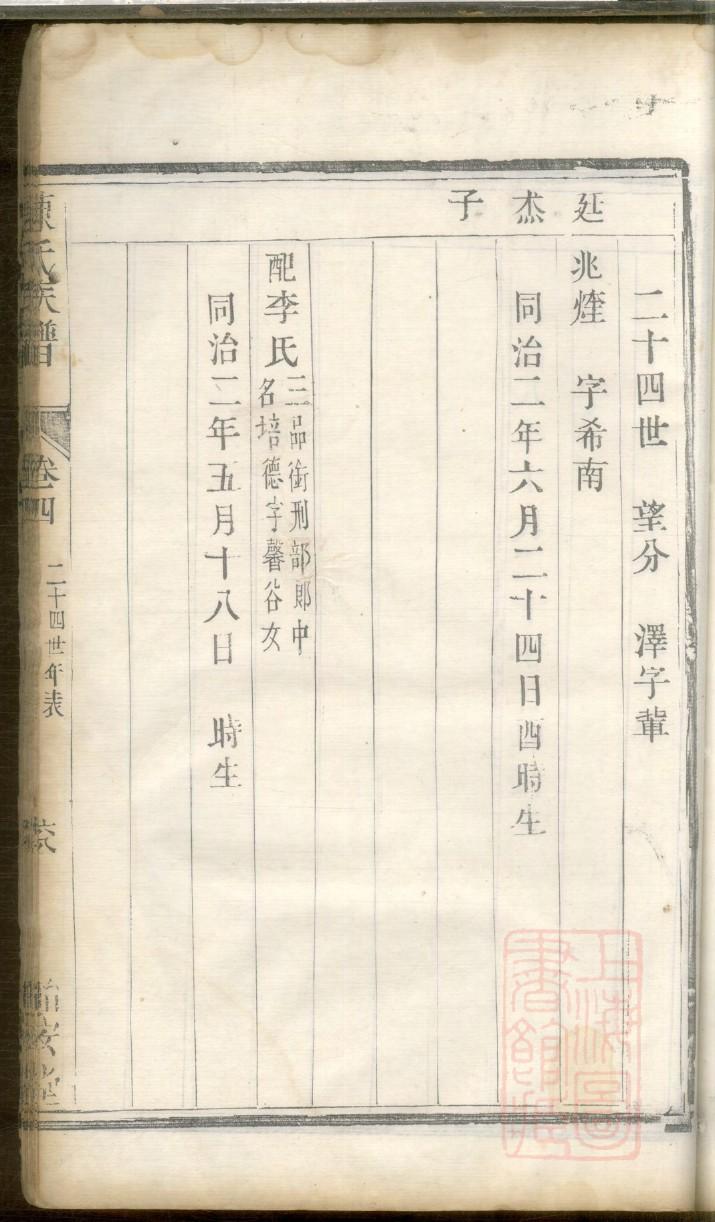 二十四世 望分 澤字輩
廷杰子
兆煃 字希南
同治二年六月二十四日酉時生
配李氏三品銜刑部郎中
名培德字馨谷女
同治二年五月十八日 時生
陳氏族譜
卷四
二十四世年表
上海圖
書館藏